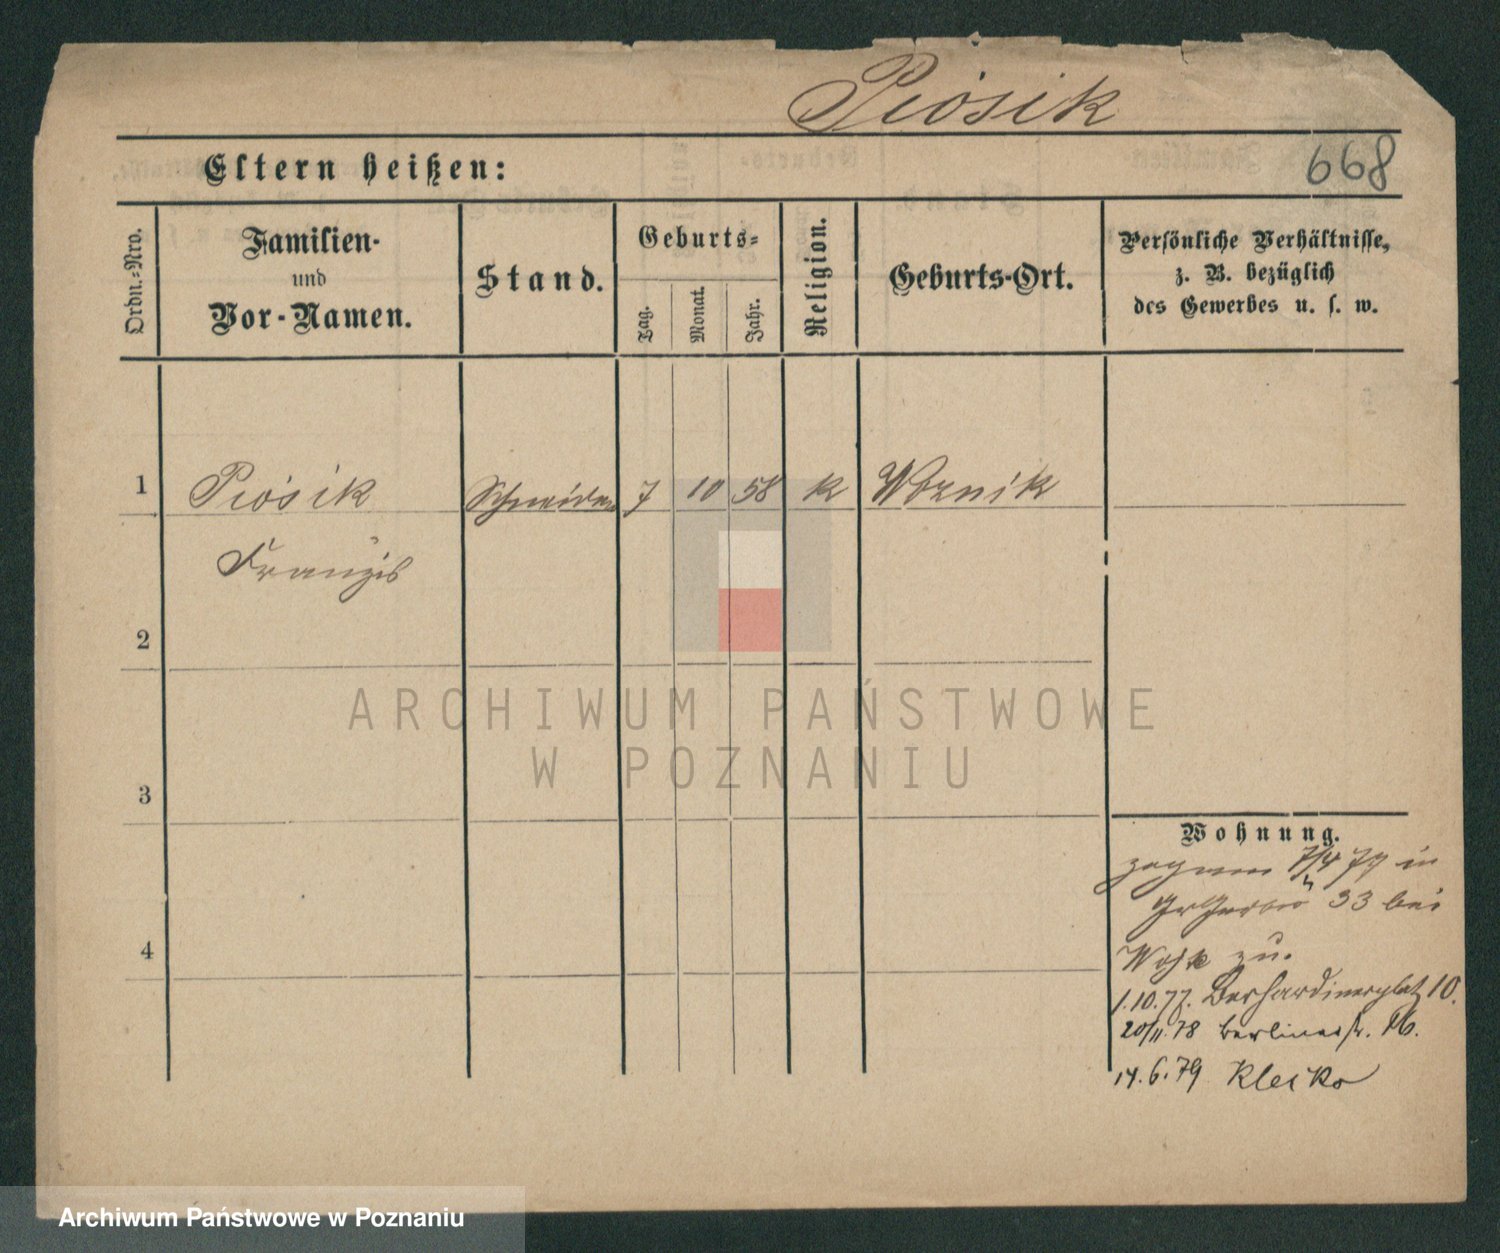 Piosik
668
Eltern heißen:
Ordn.=Nro.
Familien-
und
Vor-Namen.
Stand.
Geburts=
Tag.
Monat.
Jahr.
Religion.
Geburts-Ort.
Persönliche Verhältnisse,
z. B. bezüglich
des Gewerbes u. s. w.
1 Piosik Schneider 7 10 58 k Woznik
2
3
4
Wohnung.
7/4 77 in
33 bei
zu.
1.10.77. Bernhardinerplatz 10.
20/11.78 Berlinerstr. 16.
14.6.79 Klecko
ARCHIWUM PAŃSTWOWE
W POZNANIU
Archiwum Państwowe w Poznaniu